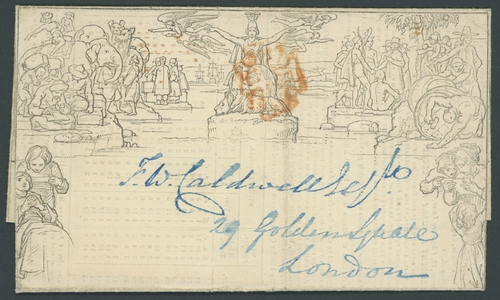 F. W. Caldwell Esq
29 Golden Square
London